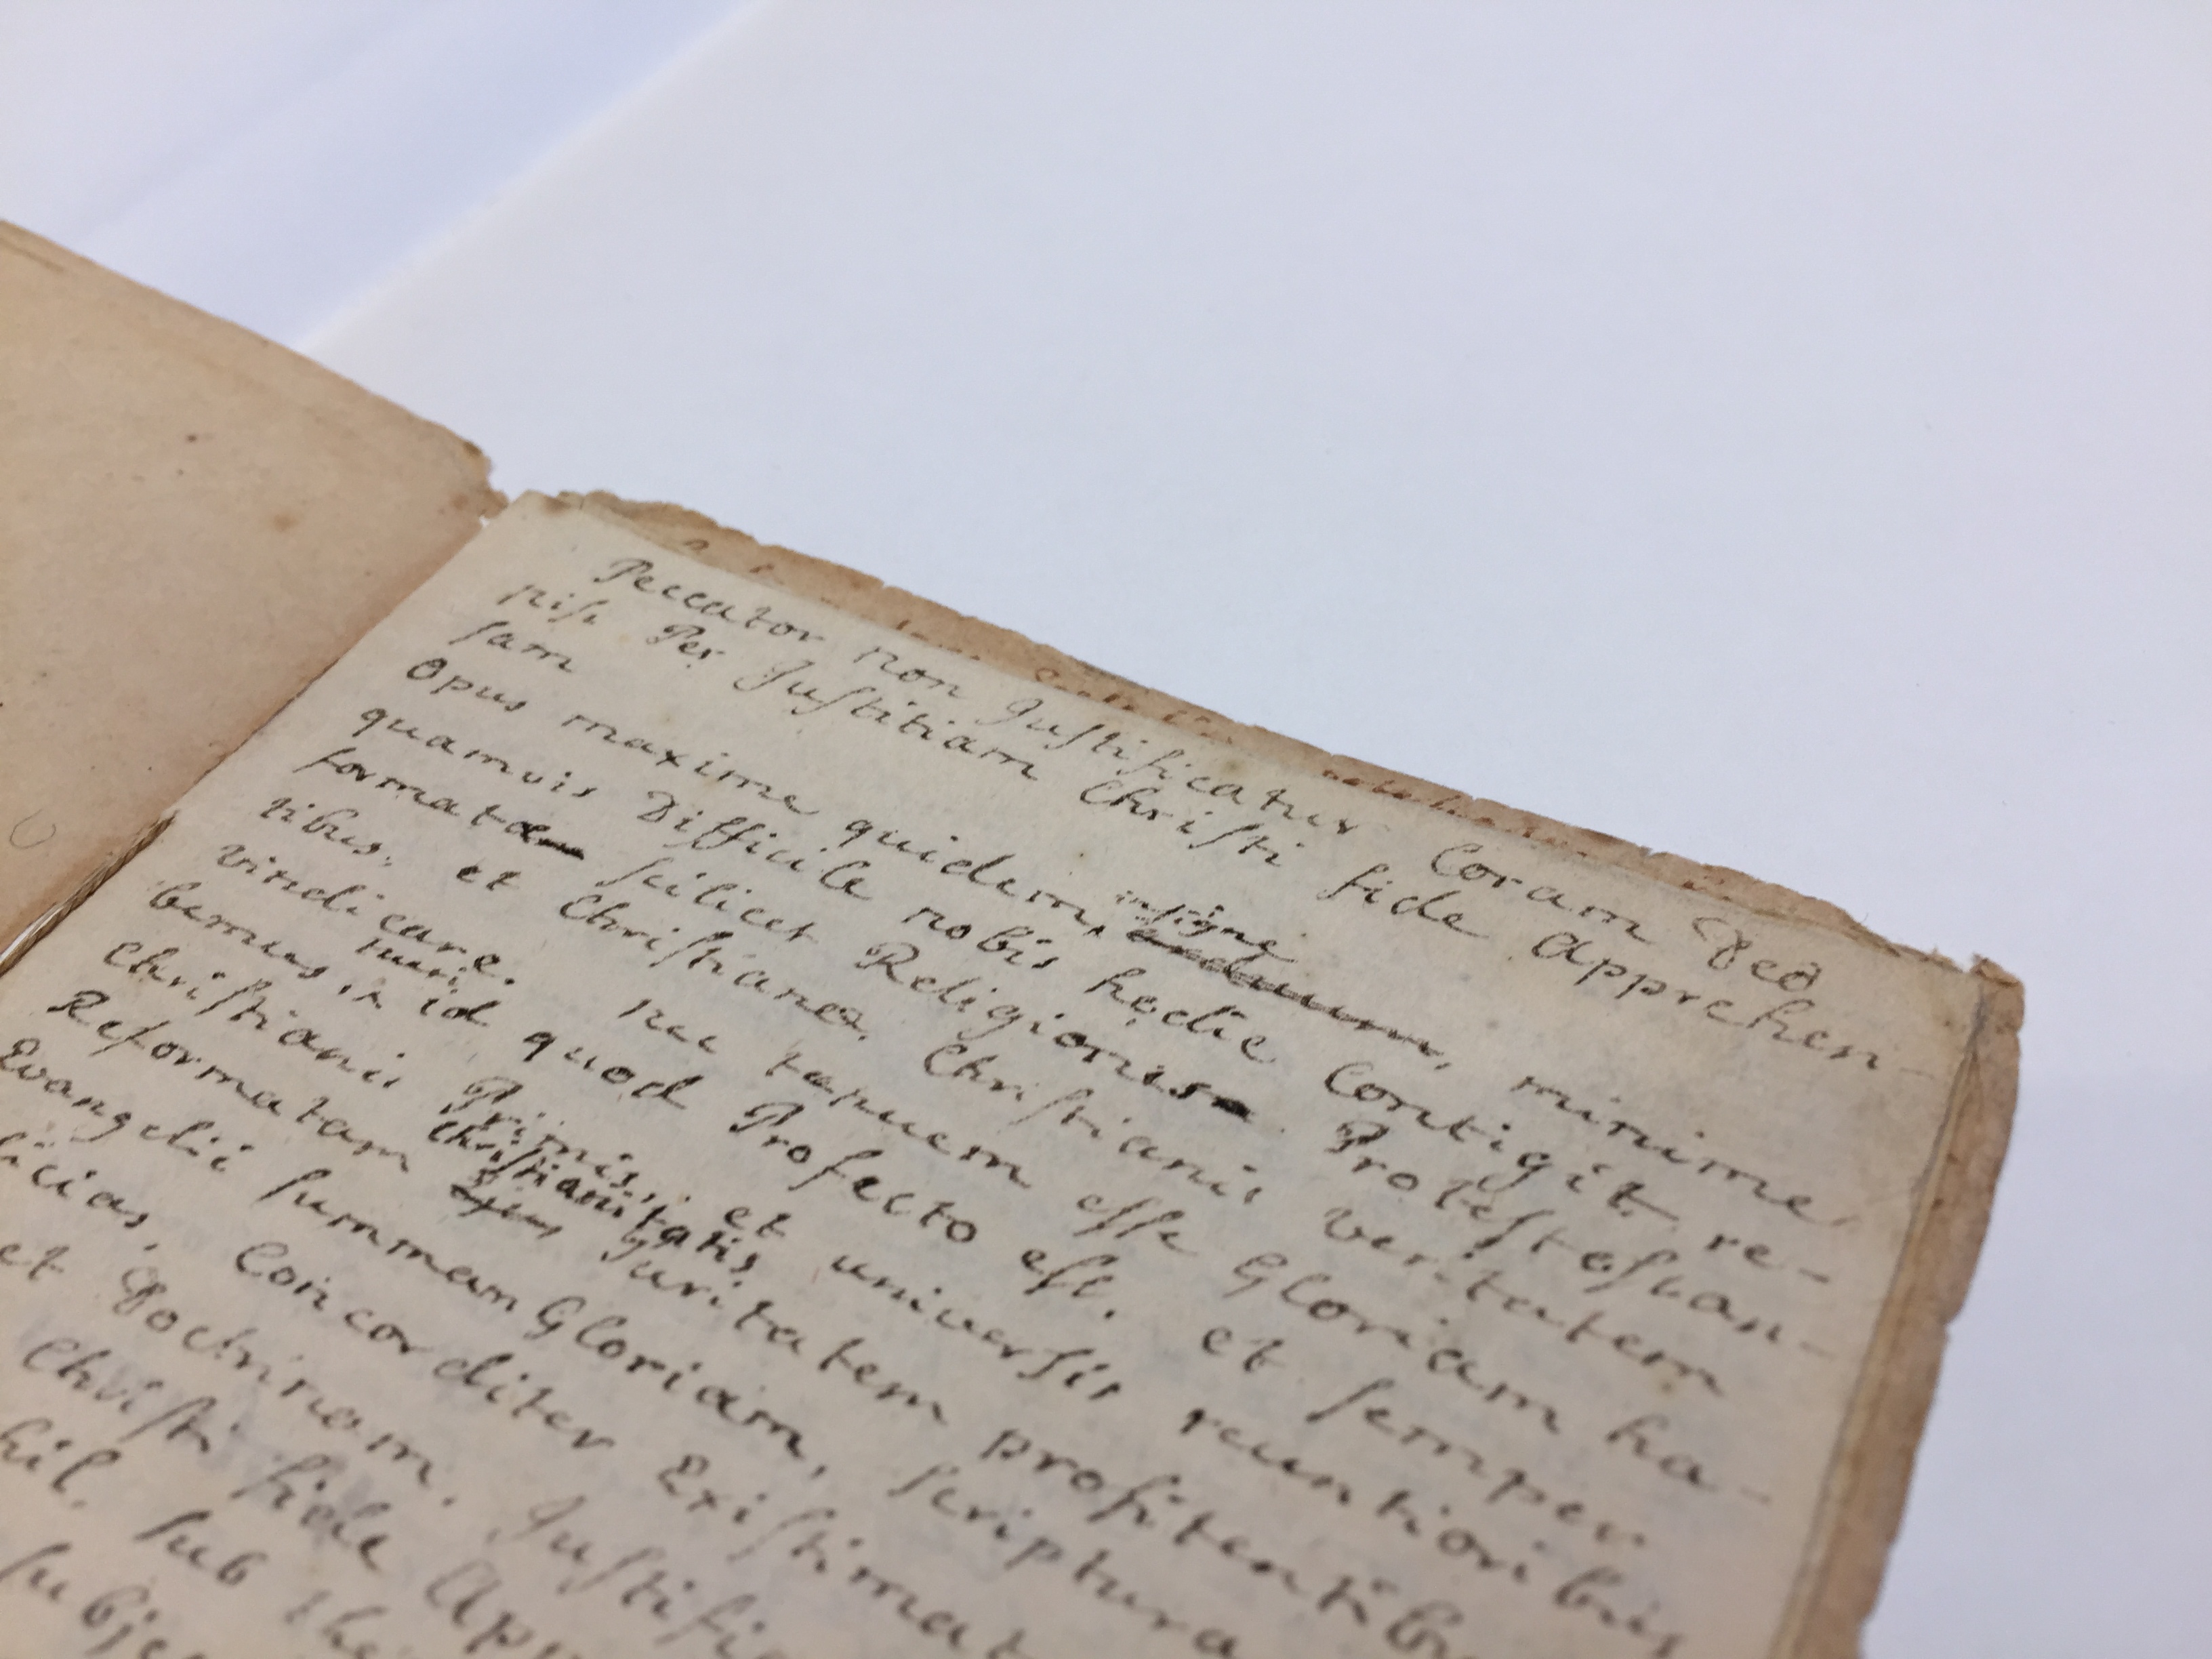 Peccator non Justificatur Coram Deo
nisi Per Justitiam Christi fide apprehen-
sam
Opus maxime quidem, insigne arduum, minime
quamvis Difficile nobis hodie Contigit re-
formatæ scilicet Religionis Protestan-
tibus, et Christianæ Christianis veritatem
vindicare. nec tamen esse Gloriam ha-
bemus, id quod Profecto est. et semper
Christianis Primis, et universis recentioribus
Reformatam Christianitatis puritatem profitentibus
Evangelii summam Gloriam, scriptura
Concorditer Existimat
et Doctrinam. Justifi
Christi fide App
sub
subje